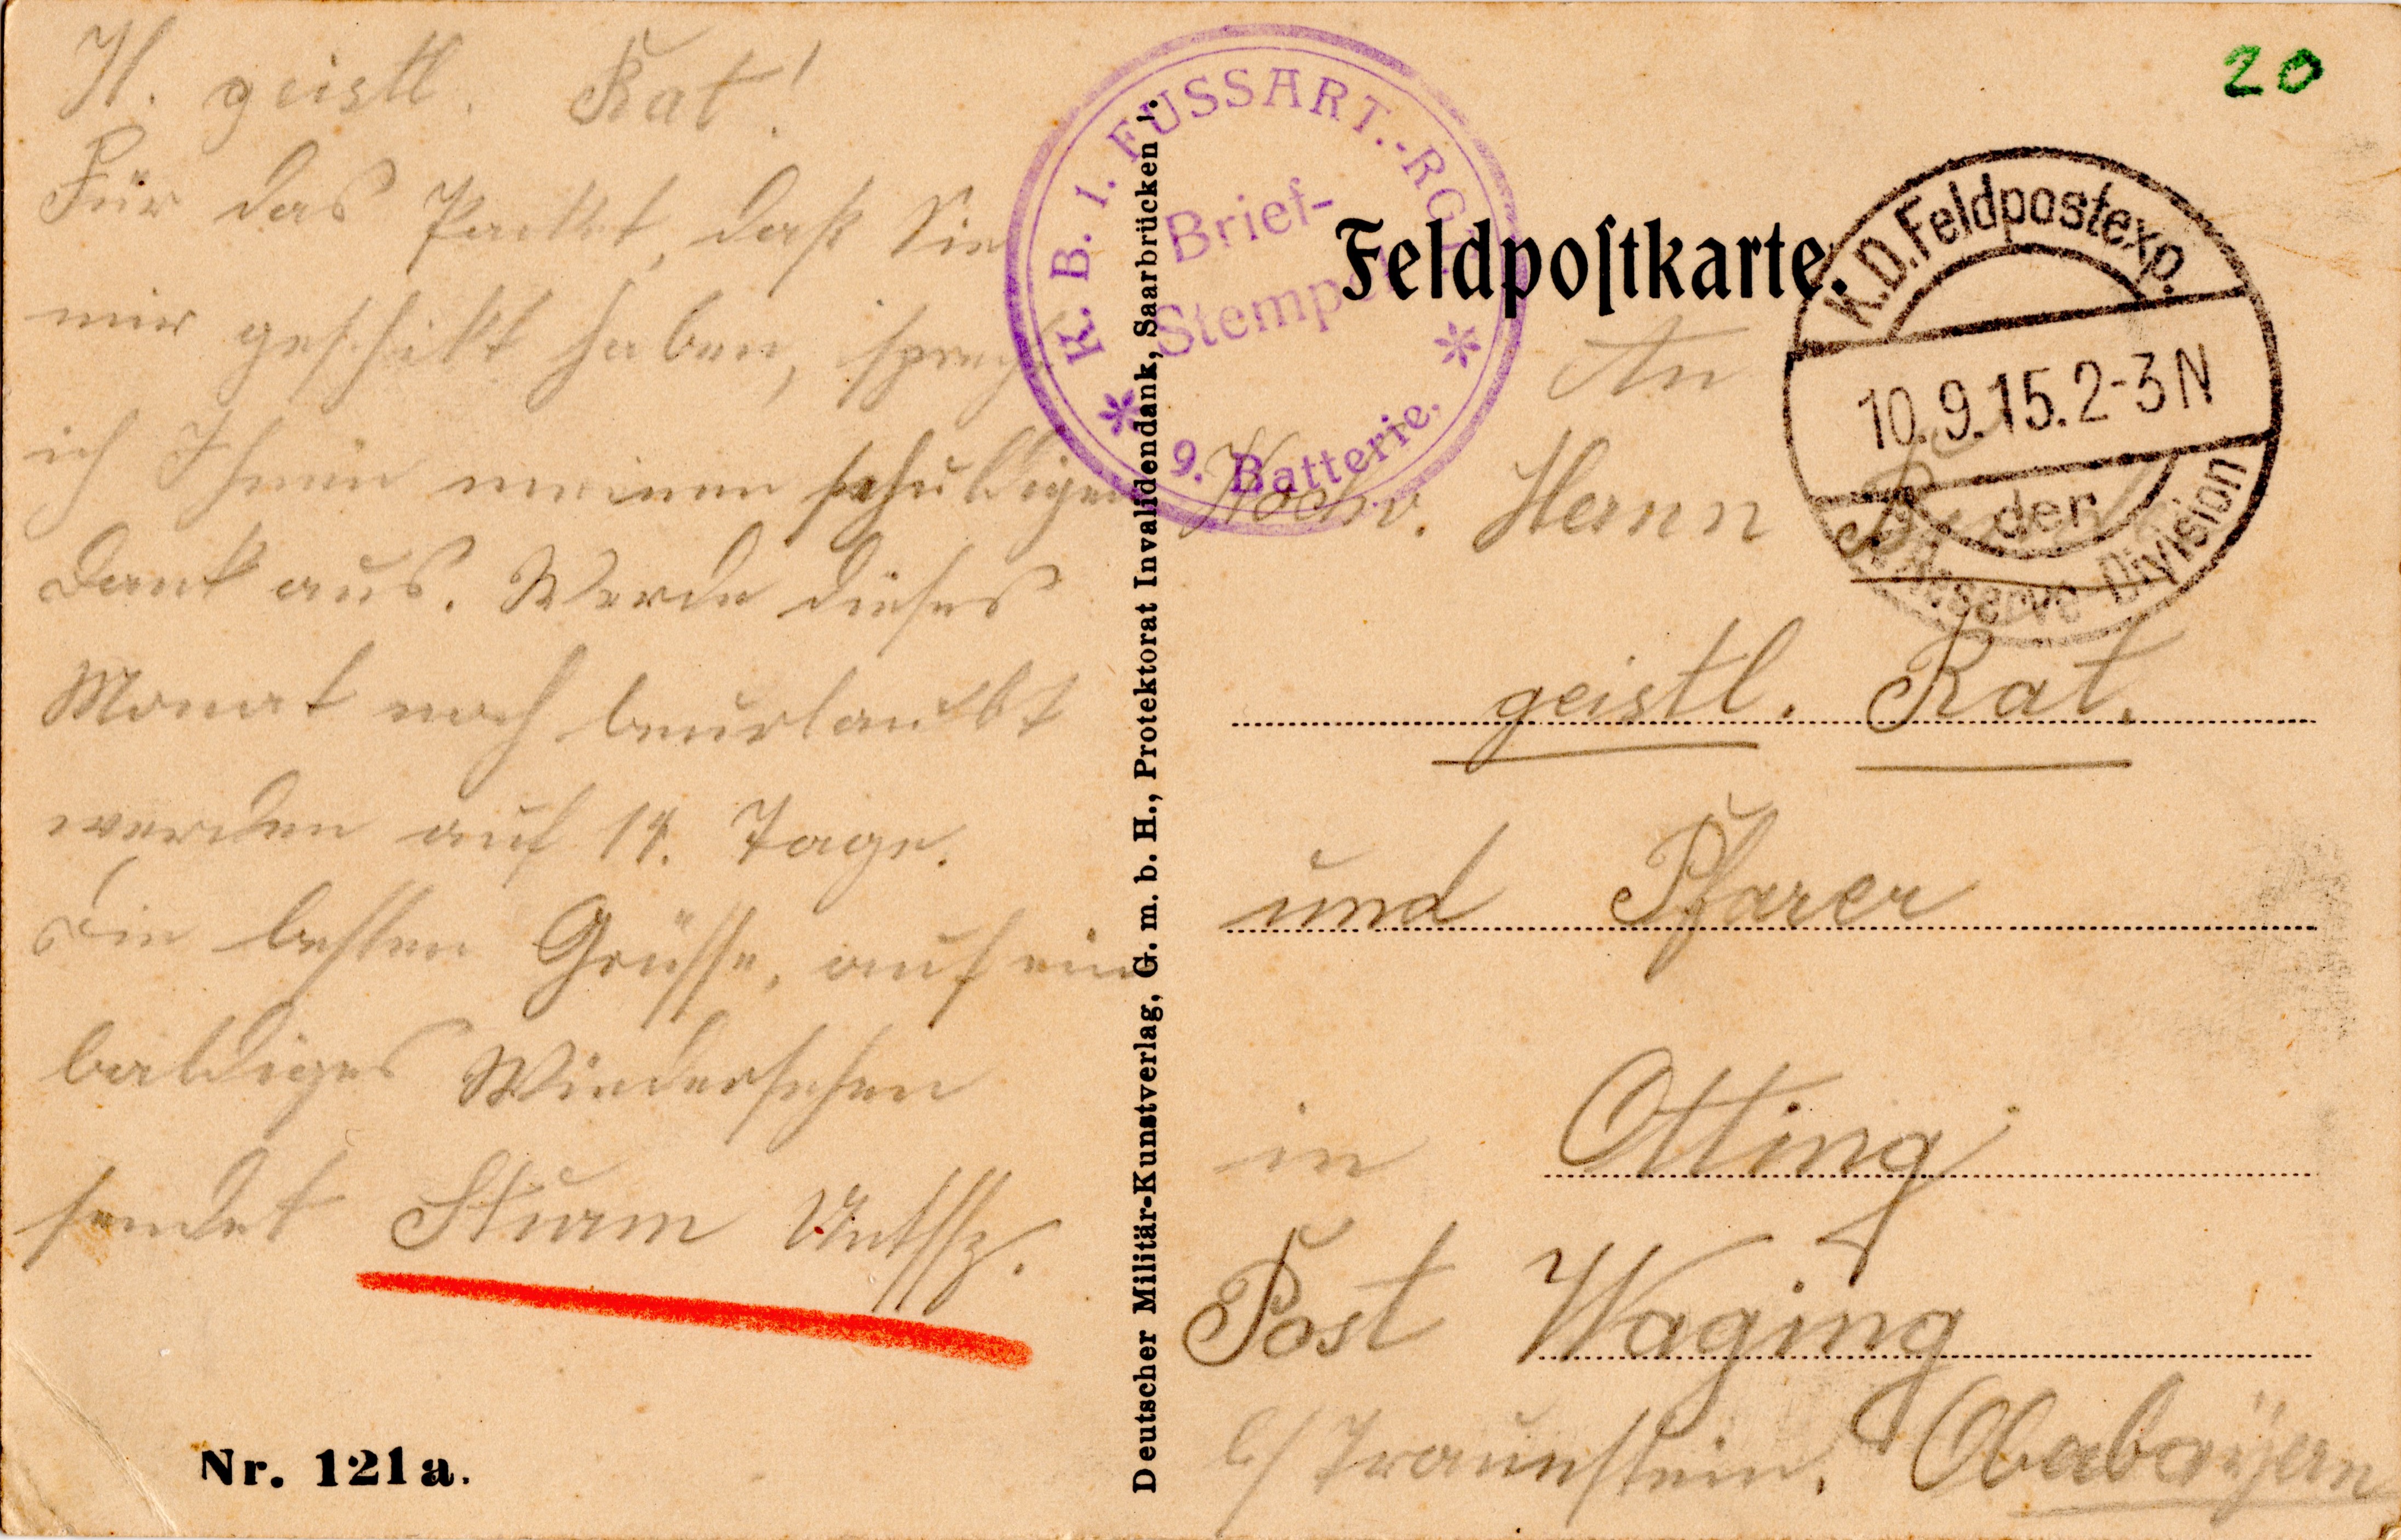 H. geistl. Rat!
Für das Packet, daß Sie
mir geschikt haben, sprech
ich Ihnen meinen schuldigen
Dank aus. Werde dieses
Monat noch beurlaubt
werden auf 14. Tage.
Die besten Grüsse, auf ein
baldiges Wiedersehen
sendet Sturm Untffz.
Nr. 121a.
Deutscher Militär-Kunstverlag, G. m. b. H., Protektorat Invalidendank, Saarbrücken v.
K. B. I. FUSSART.-RGT.
Brief-
Stempel
9. Batterie.
20
Feldpostkarte.
K.D. Feldpostexp.
10.9.15.2-3N
der
Reserve Division
An
Hochw. Herrn
geistl. Rat.
und Pfarer
in Otting
Post Waging
b/ Traunstein. Obabayern